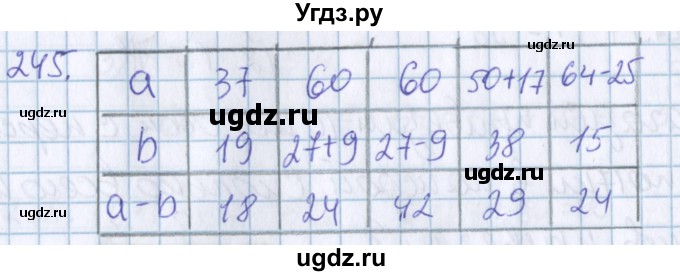 Угдз.ру
245.
a 37 60 60 50+17 64-25
b 19 27+9 27-9 38 15
a-b 18 24 42 29 24
ugdz.ru
ugdz.ru
ugdz.ru
ugdz.ru
ugdz.ru
ugdz.ru
ugdz.ru
ugdz.ru